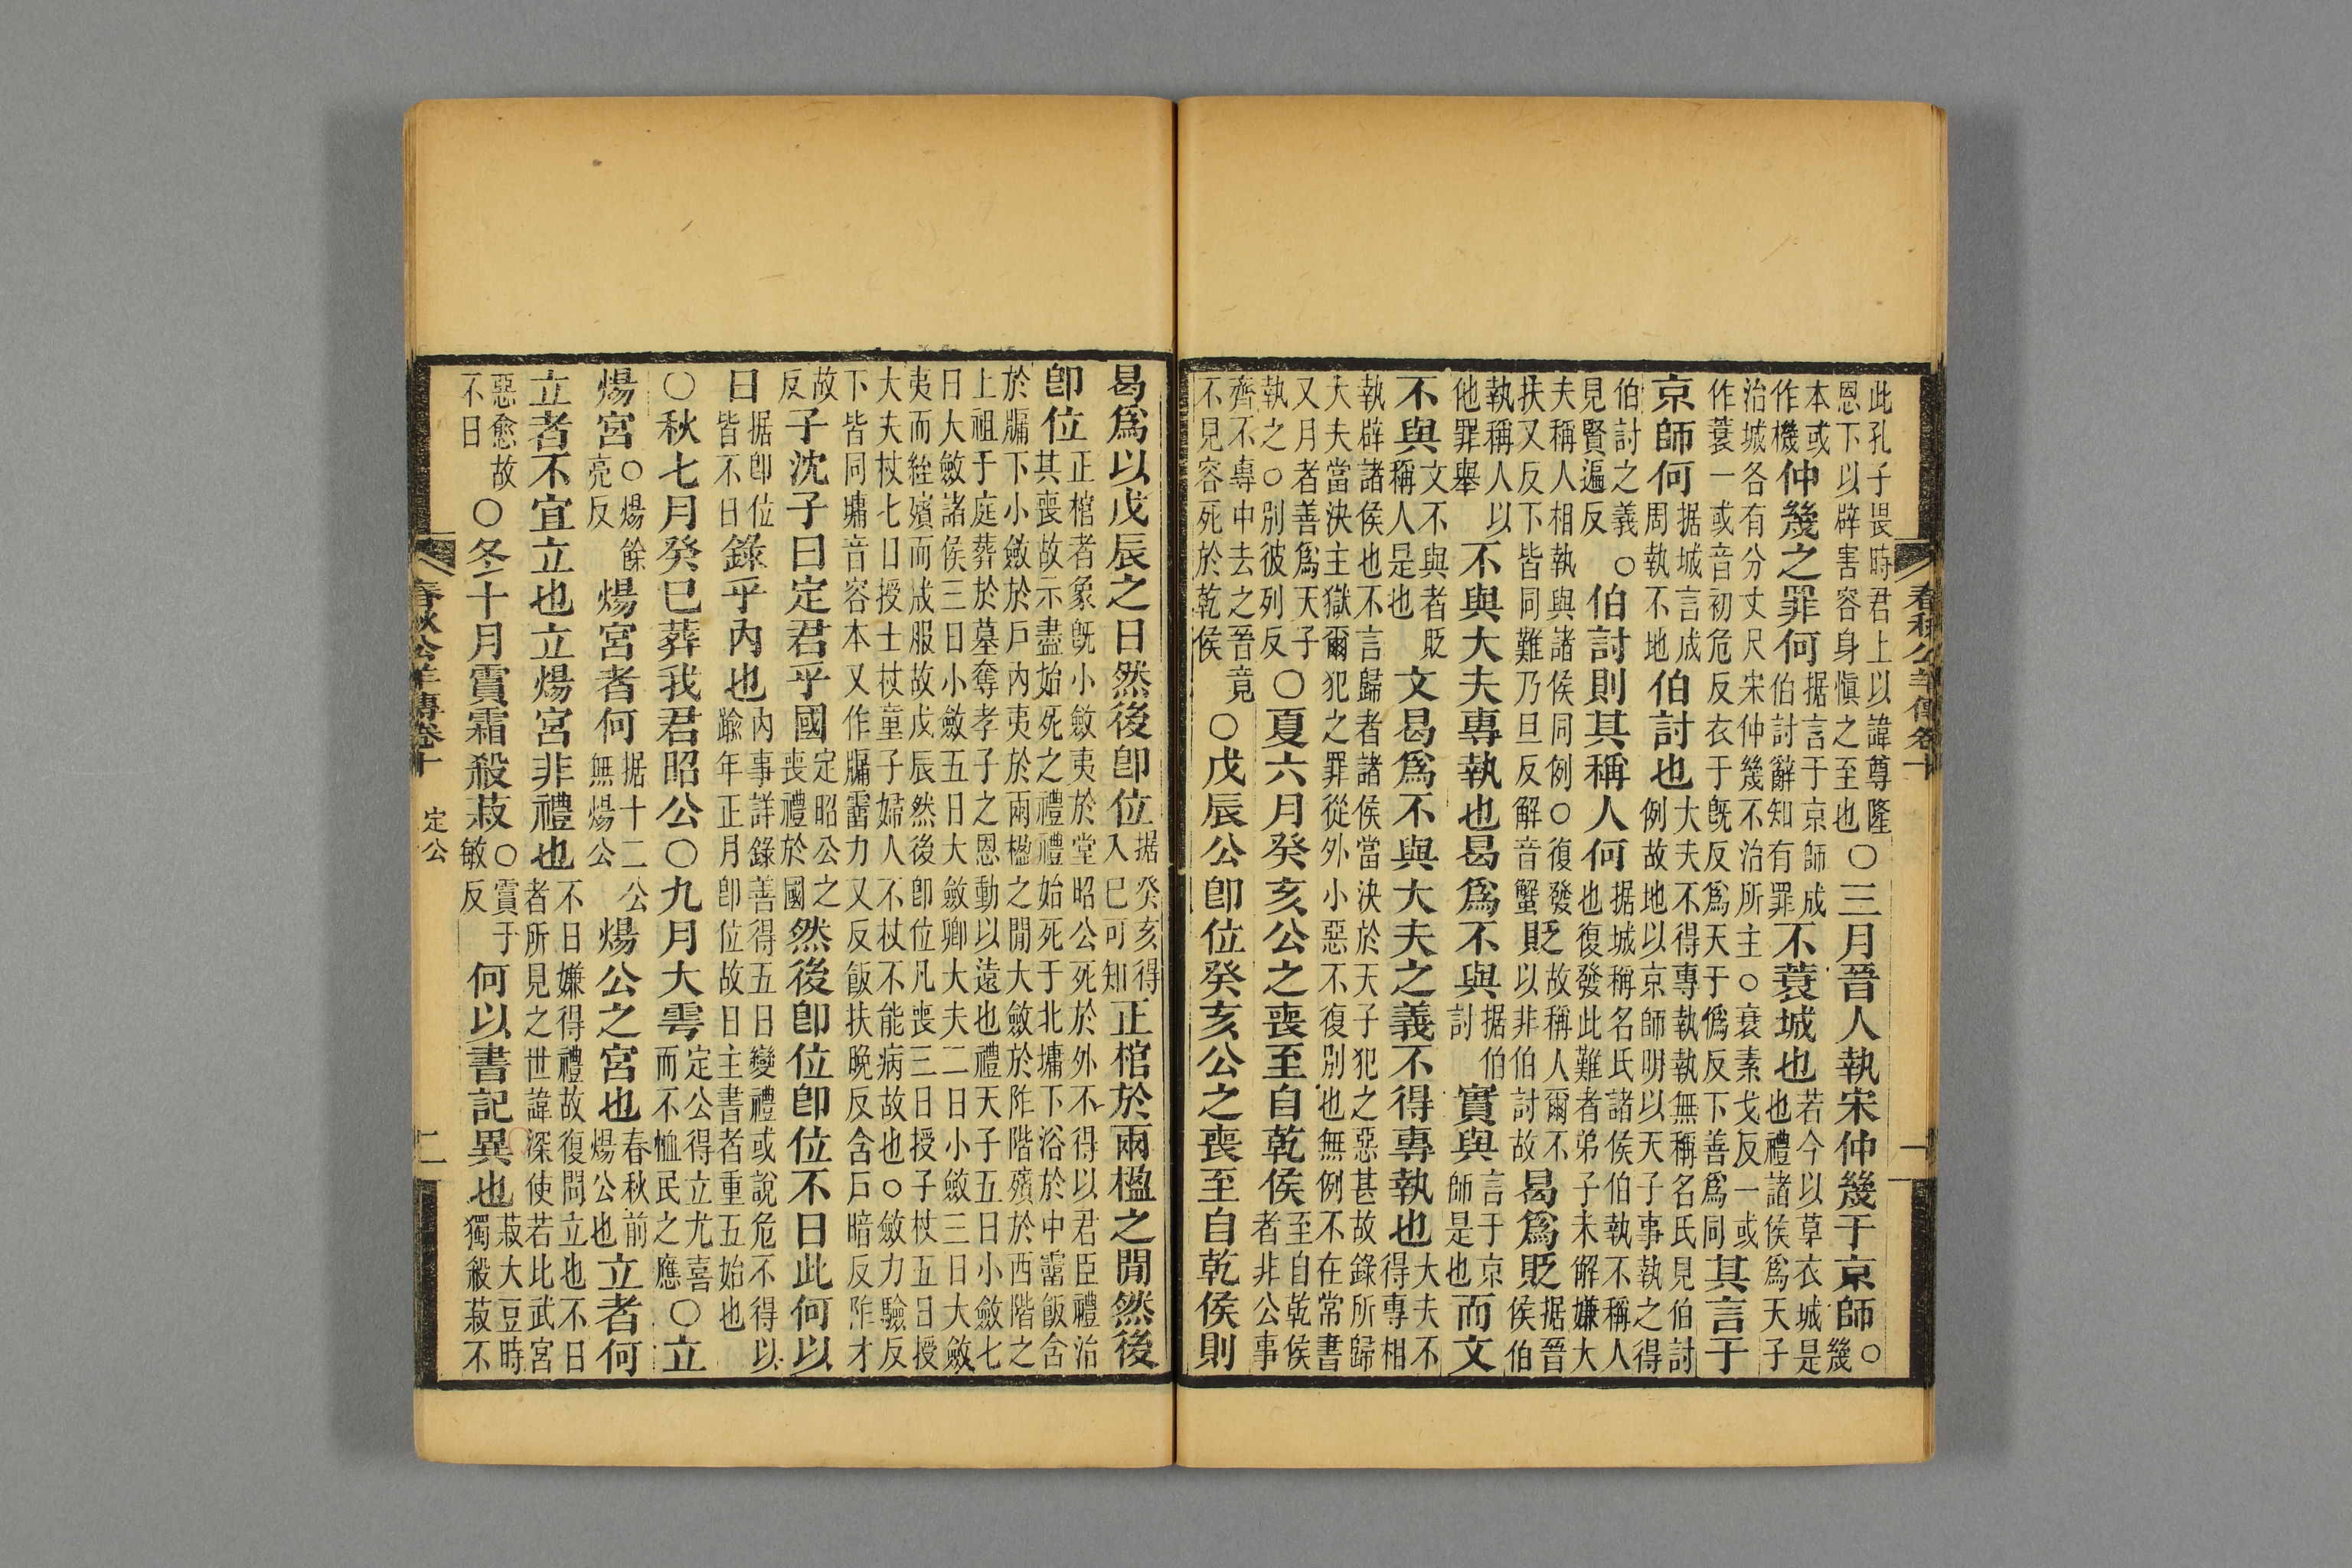 春秋公羊傳卷十一
一
此孔子畏時君上以諱尊隆
恩下以辟害容身慎之至也
○三月晉人執宋仲幾于京師
○
幾
本或
作機
仲幾之罪何
据言于京師成
伯討辭知有罪
不蓑城也
若今以草衣城是
也禮諸侯爲天子
治城各有分丈尺宋仲幾不治所主○衰素戈反一或
作蓑一或音初危反衣于旣反爲天于僞反下善爲同
其言于
京師何
据城言成
周執不地
伯討也
大夫不得專執執無稱名氏見伯討
例故地以京師明以天子事執之得
伯討之義
見賢遍反
○伯討則其稱人何
据城稱名氏諸侯伯執不稱人
也復發此難者弟子未解嫌大
夫稱人相執與諸侯同例○復發
扶又反下皆同難乃旦反解音蟹
貶
故稱人爾不
以非伯討故
曷爲貶
据晉
侯伯
執稱人以
他罪舉
不與大夫專執也曷爲不與
据伯
討
實與
言于京
師是也
而文
不與
文不與者貶
稱人是也
文曷爲不與大夫之義不得專執也
大夫不
得專相
執辟諸侯也不言歸者諸侯當決於天子犯之惡甚故錄所歸
大夫當決主獄爾犯之罪從外小惡不復別也無例不在常書
又月者善爲天子
執之○別彼列反
○夏六月癸亥公之喪至自乾侯
至自乾侯
者非公事
齊不專中去之晉竟
不見容死於乾侯
○戊辰公卽位癸亥公之喪至自乾侯則
曷爲以戊辰之日然後卽位
据癸亥得
入巳可知
正棺於兩楹之閒然後
卽位
正棺者象旣小斂夷於堂昭公死於外不得以君臣禮治
其喪故示盡始死之禮禮始死于北墉下浴於中霤飯含
於牖下小斂於戶內夷於兩楹之閒大斂於阼階殯於西階之
上祖于庭葬於墓奪孝子之恩動以遠也禮天子五日小斂七
日大斂諸侯三日小斂五日大斂卿大夫二日小斂三日大斂
夷而絰殯而成服故戊辰然後卽位凡喪三日授子杖五日授
大夫杖七日授士杖童子婦人不杖不能病故也○斂力驗反
下皆同墉音容本又作牖霤力又反飯扶晚反含戶暗反阼才
故
反
子沈子曰定君乎國
定昭公之
喪禮於國
然後卽位卽位不日此何以
日
据卽位
皆不日
錄乎內也
內事詳錄善得五日變禮或說危不得以
踰年正月卽位故日主書者重五始也
○秋七月癸巳葬我君昭公○九月大雩
定公得立尤喜
而不恤民之應
○立
煬宮
○煬餘
亮反
煬宮者何
据十二公
無煬公
煬公之宮也
春秋前
煬公也
立者何
立者不宜立也立煬宮非禮也
不日嫌得禮故復問立也不日
者所見之世諱深使若比武宮
惡愈故
不日
○冬十月霣霜殺菽
○霣于
敏反
何以書記異也
菽大豆時
獨殺菽不
春秋公羊傳卷十一
定公
二